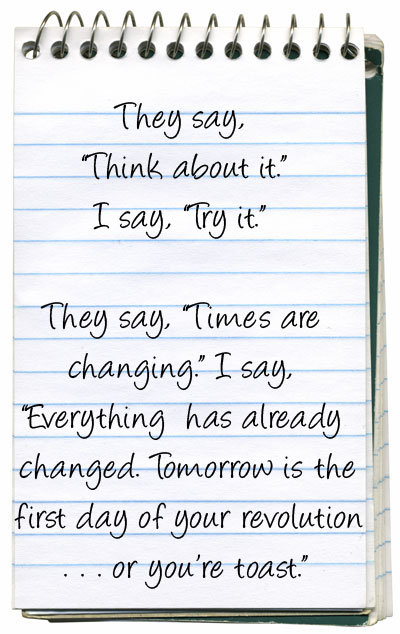 They say,
“Think about it.”
I say, “Try it.”
They say, “Times are
changing.” I say,
“Everything has already
changed. Tomorrow is the
first day of your revolution
. . . or you’re toast.”